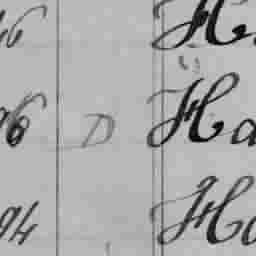 6 H
96 D Ha
94 Ha